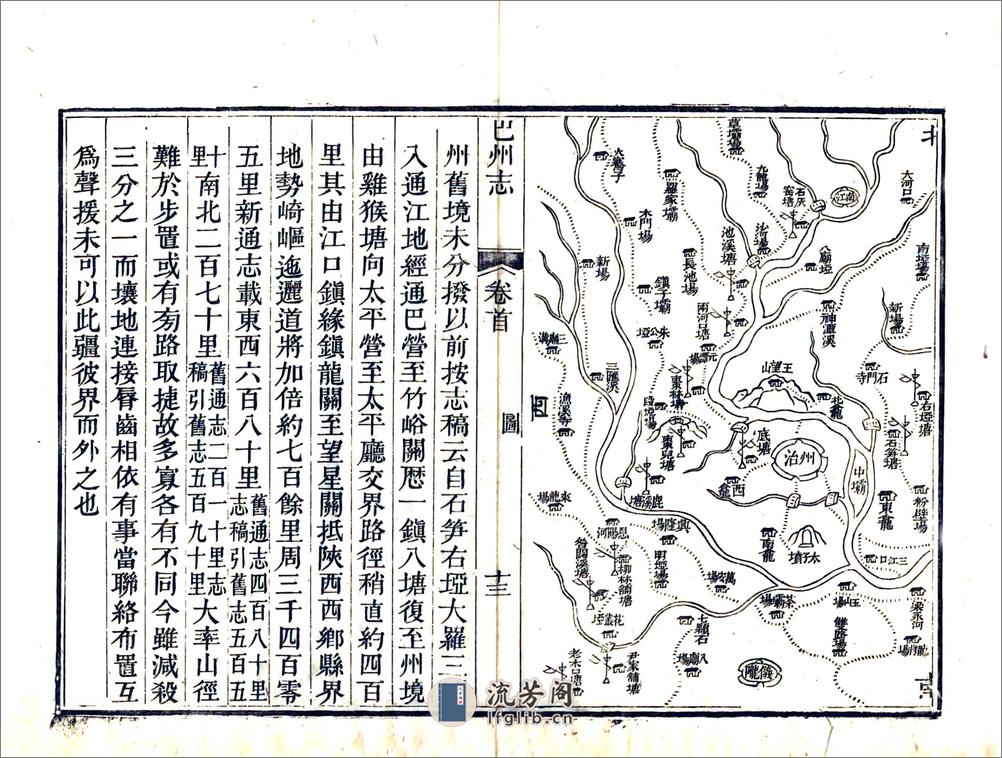 北
大河口
南江
草壩場
九龍場
石灰窰塘
沙場
池溪塘
羅家壩
大鷄子
木門場
長池場
鎮子壩
新場
八廟埡
神潭溪
南埡場
新場
兩河口塘
朱公埡
元潭場
三廟溝
三匯溪
漁溪寺
西
棗林場
段埡場
棗兒塘
王望山
北龕
石門寺
右埡塘
石笋塘
底塘
西龕
州治
中壩
東龕
粉壁場
來龍場
鹿溪塘
興隆場
恩陽河
明埡場
柳林鋪塘
南龕
太子墳
三江口
萬安場
茶壩場
玉山場
雙勝場
梁永河
龍門場
花叢埡
七顆石
八廟場
尹家鋪塘
老木口塘
儀隴
巴州志
卷首
圖
十三
州舊境未分撥以前按志稿云自石笋右埡大羅三
入通江地經通巴營至竹峪關歷一鎮八塘復至州境
由雞猴塘向太平營至太平廳交界路徑稍直約四百
里其由江口鎮緣鎮龍關至望星關抵陝西西鄉縣界
地勢崎嶇迤邐道將加倍約七百餘里周三千四百零
五里新通志載東西六百八十里舊通志四百八十里志稿引舊志五百五
十里南北二百七十里舊通志二百一十里志稿引舊志五百九十里大率山徑
難於步置或有旁路取捷故多寡各有不同今雖減殺
三分之一而壤地連接脣齒相依有事當聯絡布置互
爲聲援未可以此疆彼界而外之也
流芳阁
lfglib.cn